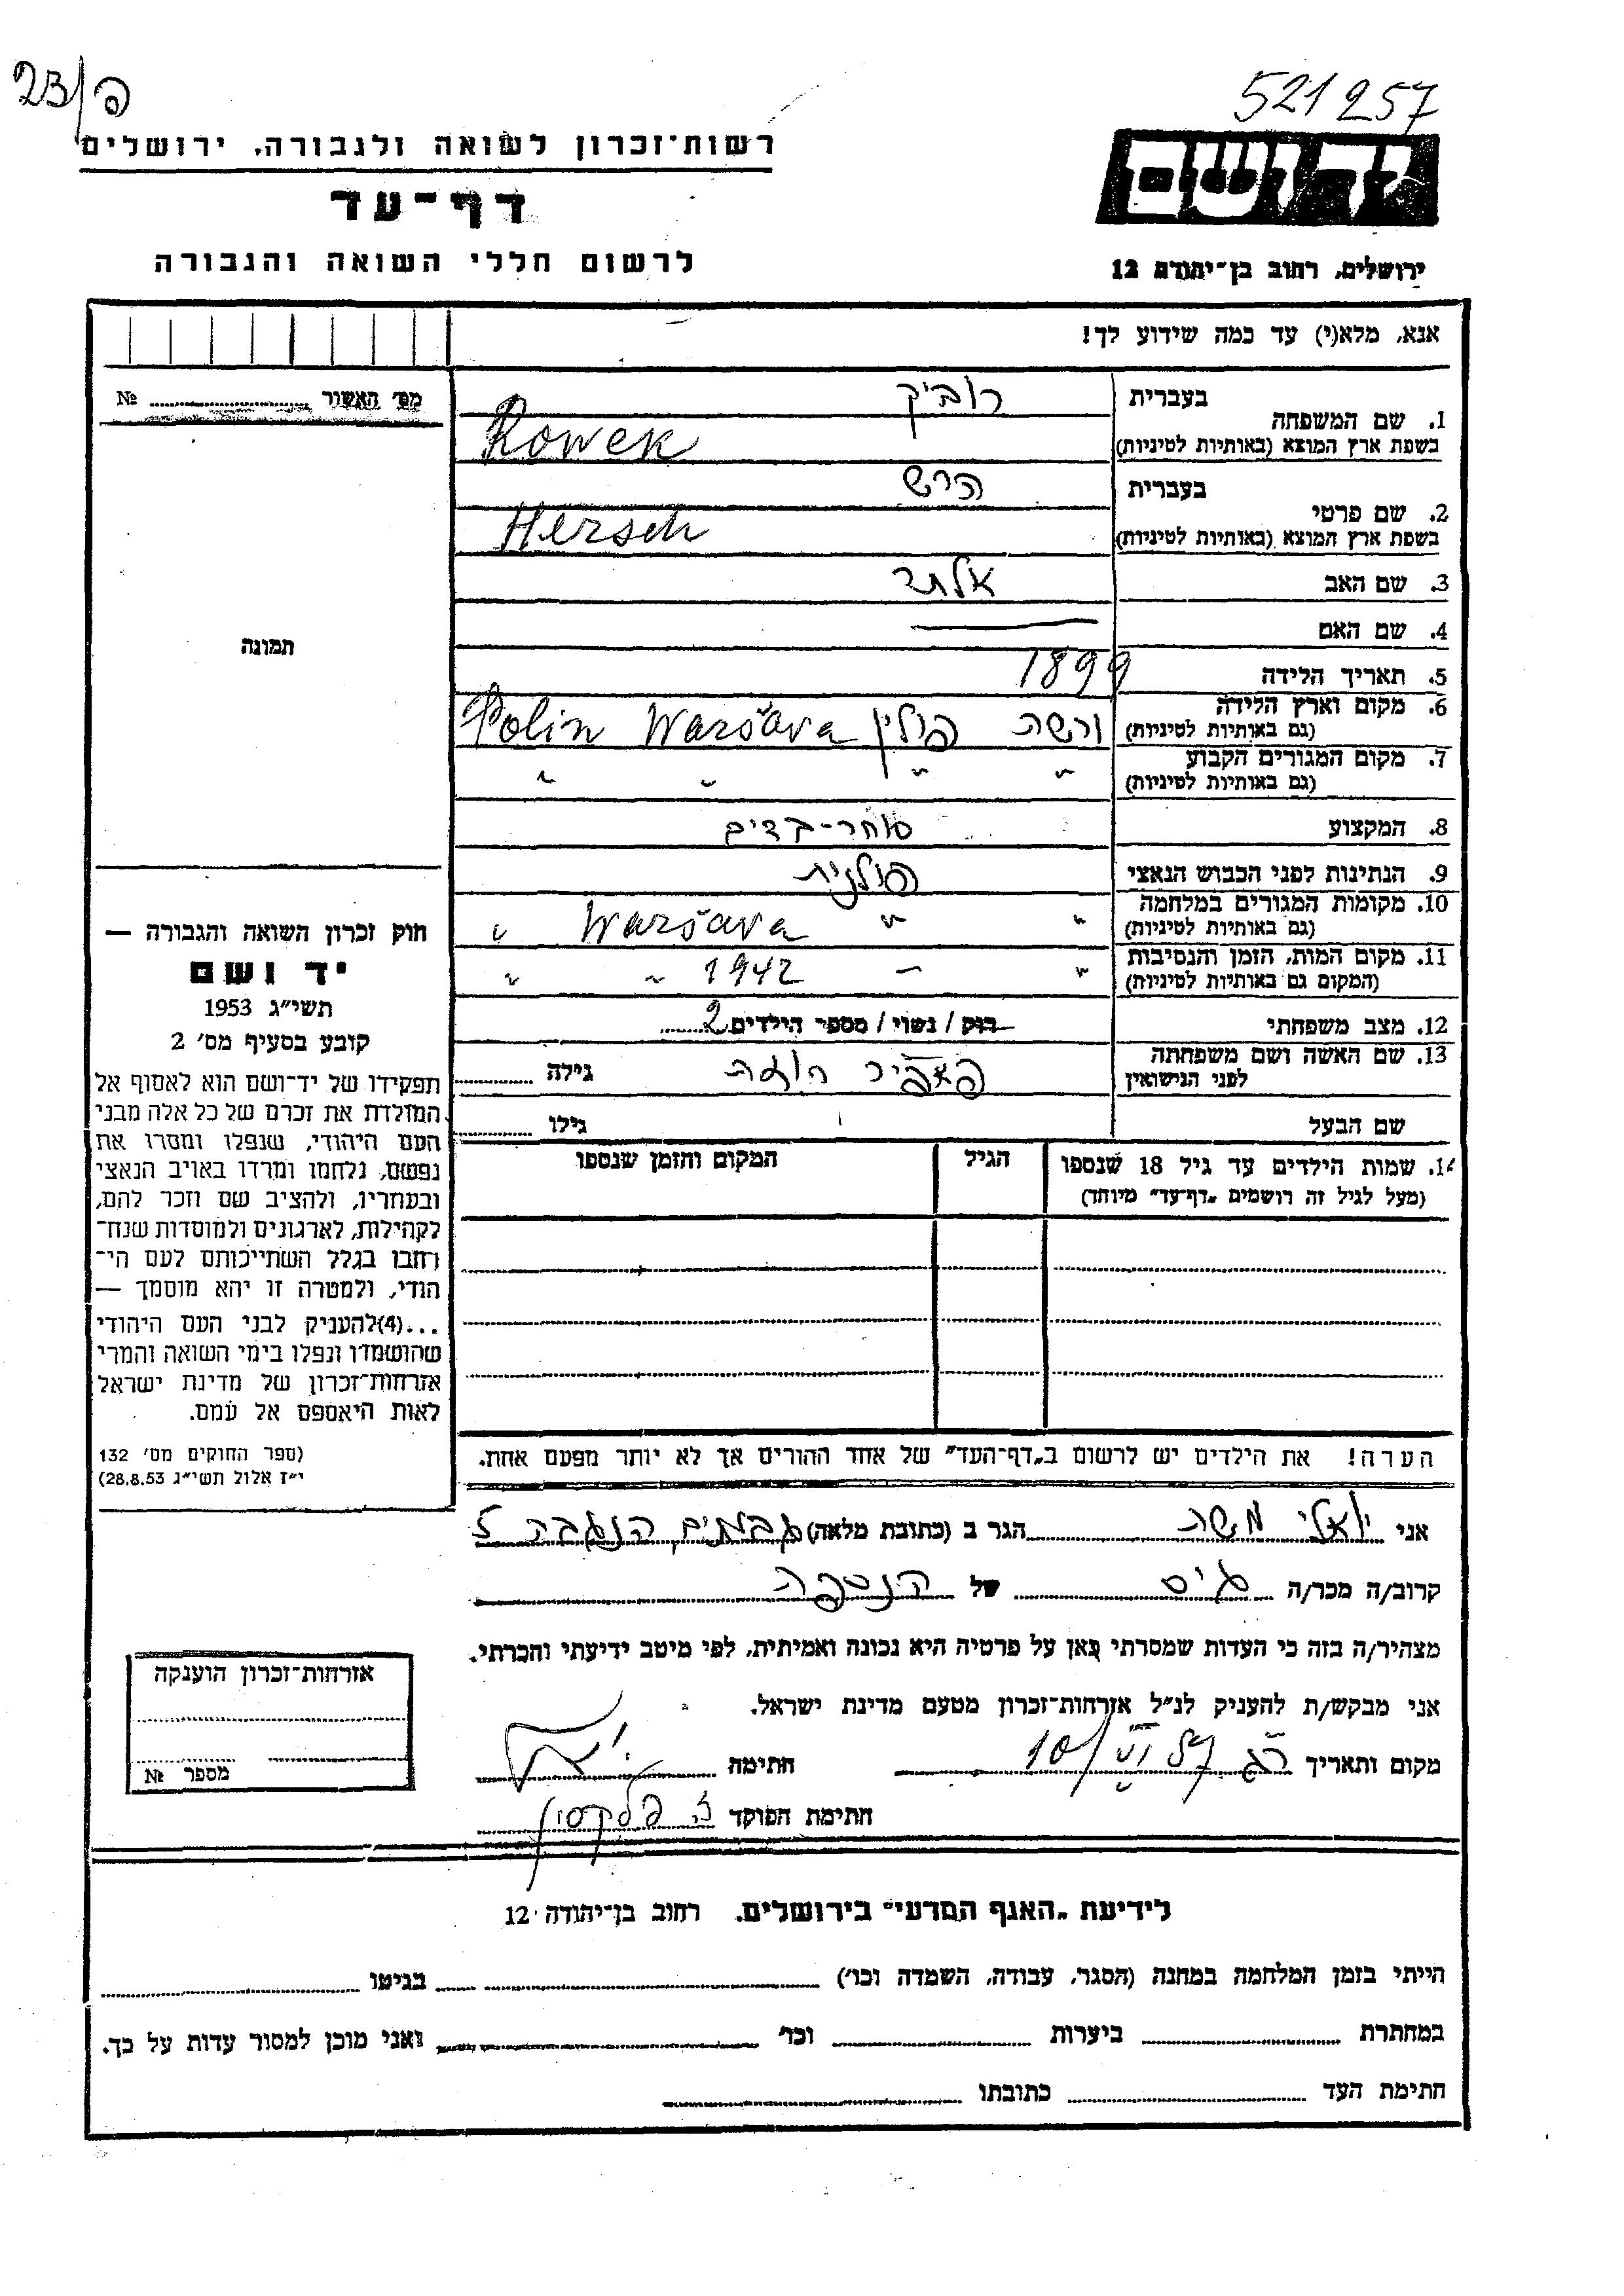 23/פ
521257
רשות־זכרון לשואה ולגבורה, ירושלים
דף־עד
לרשום חללי השואה והגבורה
יד ושם
ירושלים, רחוב בן־יהודה 12
אנא, מלא(י) עד כמה שידוע לך!
מס׳ האשור № ....................
1. שם המשפחה
בעברית רוביק
בשפת ארץ המוצא (באותיות לטיניות) Rowek
2. שם פרטי
בעברית הרש
בשפת ארץ המוצא (באותיות לטיניות) Hersch
3. שם האב אלתר
4. שם האם —
5. תאריך הלידה 1899
6. מקום וארץ הלידה
(גם באותיות לטיניות) ורשה פולין Polin Waršava
7. מקום המגורים הקבוע
(גם באותיות לטיניות) " " " "
8. המקצוע סוחר-בדים
9. הנתינות לפני הכבוש הנאצי פולנית
10. מקומות המגורים במלחמה
(גם באותיות לטיניות) " " Waršava "
11. מקום המות, הזמן והנסיבות
(המקום גם באותיות לטיניות) " " 1942 " "
12. מצב משפחתי רוק / נשוי / מספר הילדים 2
13. שם האשה ושם משפחתה
לפני הנישואין גילה
שם הבעל גילו
14. שמות הילדים עד גיל 18 שנספו
(מעל לגיל זה רושמים „דף־עד” מיוחד)
הגיל
המקום והזמן שנספו
הערה! את הילדים יש לרשום ב„דף־העד” של אחד ההורים אך לא יותר מפעם אחת.
תמונה
חוק זכרון השואה והגבורה —
יד ושם
תשי״ג 1953
קובע בסעיף מס׳ 2
תפקידו של יד־ושם הוא לאסוף אל
המולדת את זכרם של כל אלה מבני
העם היהודי, שנפלו ומסרו את
נפשם, נלחמו ומרדו באויב הנאצי
ובעוזריו, ולהציב שם וזכר להם,
לקהילות, לארגונים ולמוסדות שנח־
רחבו בגלל השתייכותם לעם הי־
הודי, ולמטרה זו יהא מוסמך —
...(4)להעניק לבני העם היהודי
שהושמדו ונפלו בימי השואה והמרי
אזרחות־זכרון של מדינת ישראל
לאות היאספם אל עמם.
(ספר החוקים מס׳ 132
י״ז אלול תשי״ג 28.8.53)
אני יואלי משה הגר ב (כתובת מלאה) גבתים
קרוב/ה מכר/ה גיס של הנספה
מצהיר/ה בזה כי העדות שמסרתי כאן על פרטיה היא נכונה ואמיתית, לפי מיטב ידיעתי והכרתי.
אני מבקש/ת להעניק לנ״ל אזרחות־זכרון מטעם מדינת ישראל.
מקום ותאריך רג 10/VI 57 חתימה
חתימת הפוקד
אזרחות־זכרון הוענקה
מספר №
לידיעת „האגף המדעי” בירושלים, רחוב בן־יהודה 12
הייתי בזמן המלחמה במחנה (הסגר, עבודה, השמדה וכו׳) בגיטו
במחתרת ביערות וכו׳ ואני מוכן למסור עדות על כך.
חתימת העד כתובתו